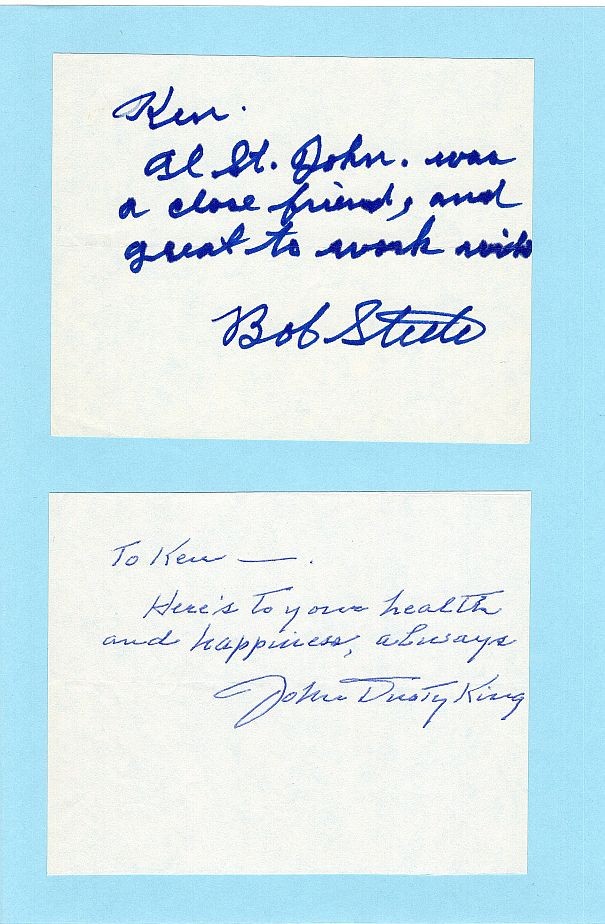 Ken.
Al St. John. was
a close friend, and
great to work with
Bob Steele
To Ken —.
Here's to your health
and happiness, always
John Dusty King